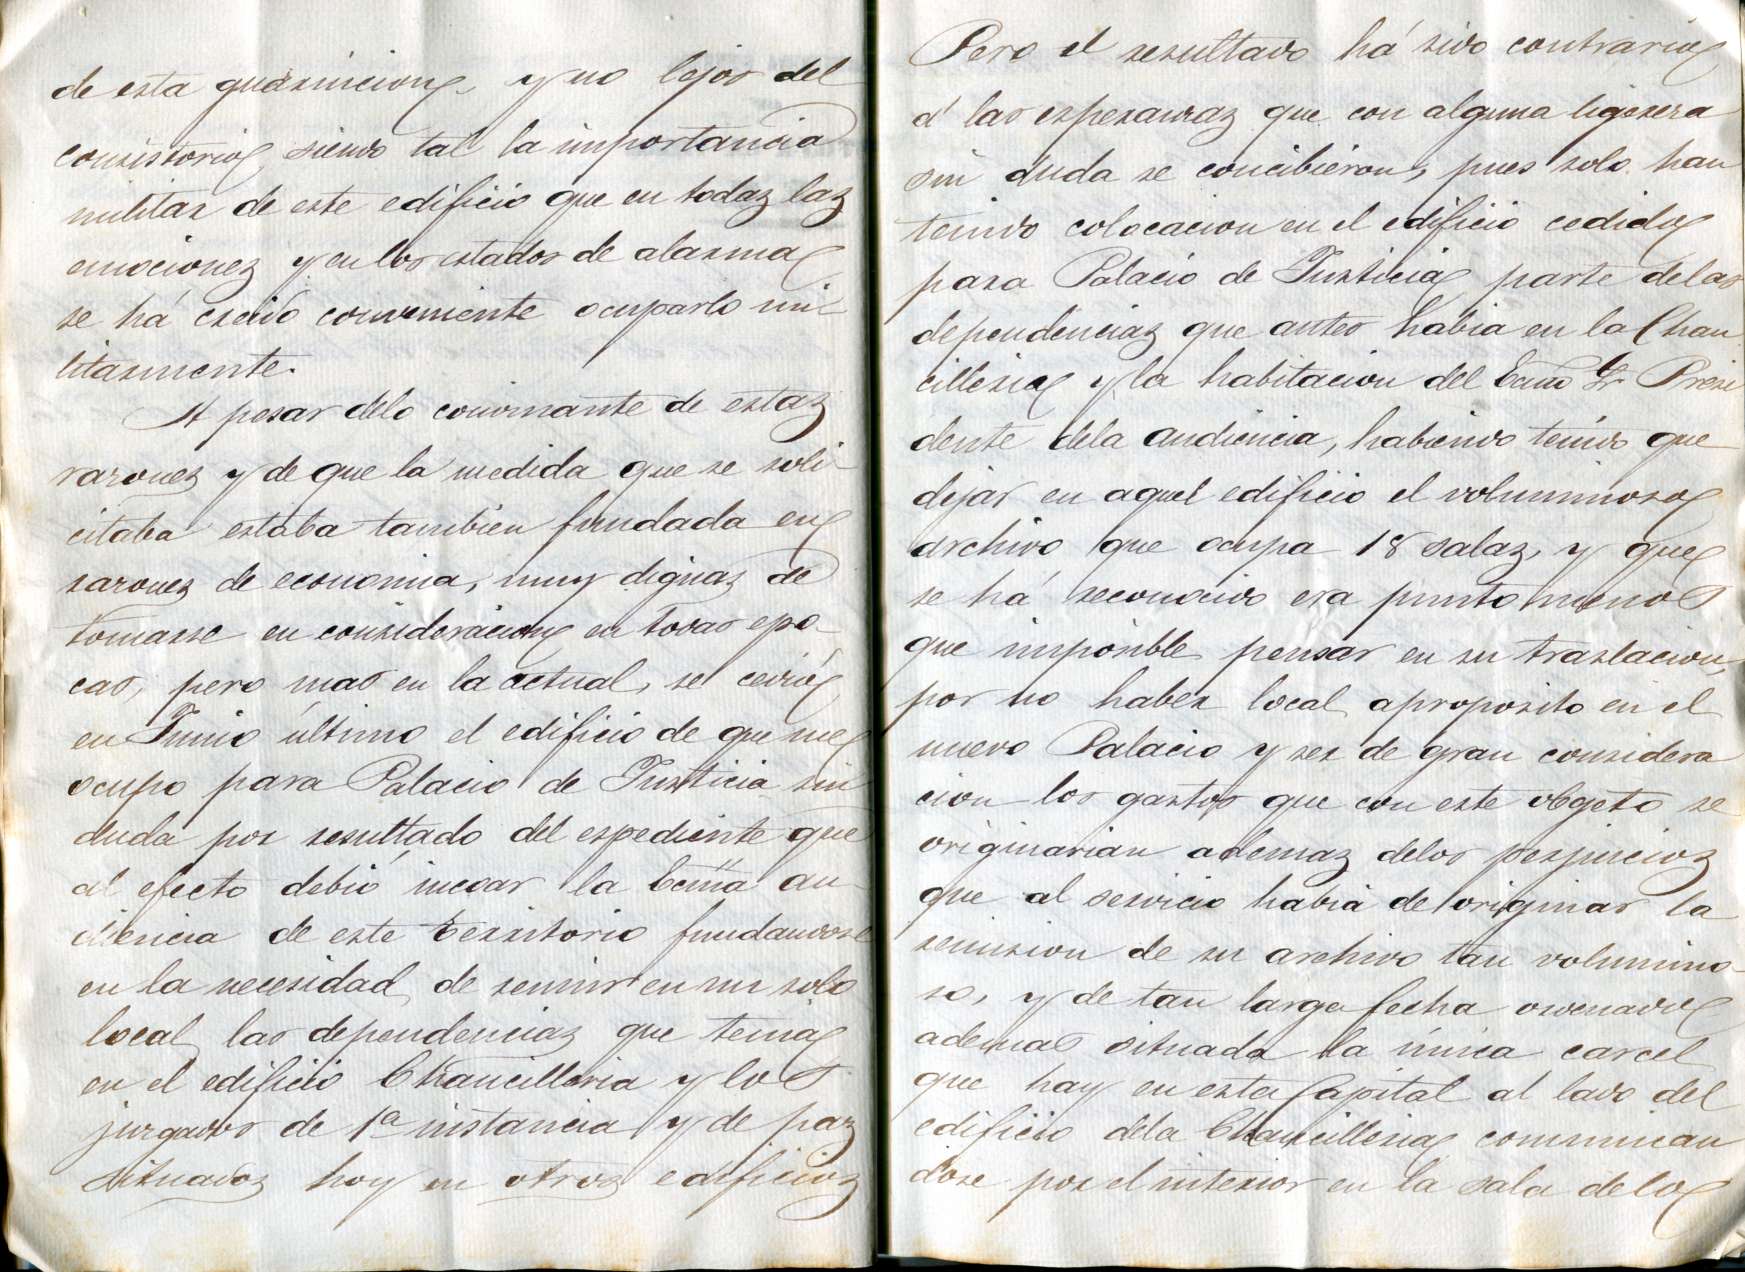 de esta guarnicion, y no lejos del
consistorio, siendo tal la importancia
militar de este edificio que en todas las
emociones y en los estados de alarma
se há creido conveniente ocuparlo mi-
litarmente.
A pesar delo convinante de estas
razones y de que la medida que se soli-
citaba estaba tambien fundada en
razones de economia, muy dignas de
tomarse en consideracion en todas epo-
cas, pero mas en la actual, se cedió
en Junio último el edificio de que me
ocupo para Palacio de Justicia sin
duda por resultado del espediente que
al efecto debió incoar la Ecma au-
diencia de este territorio fundandose
en la necesidad de reunir en un solo
local las dependencias que tenia
en el edificio Chancilleria y los
juzgados de 1ª instancia y de paz
situados hoy en otros edificios
Pero el resultado há sido contrario
á las esperanzas que con alguna ligereza
sin duda se concibieron, pues solo han
tenido colocacion en el edificio cedido
para Palacio de Justicia parte delas
dependencias que antes habia en la Chan
cilleria y la habitacion del Ecmo Sr Presi
dente dela audiencia, habiendo tenido que
dejar en aquel edificio el voluminoso
archivo que ocupa 18 salas, y que
se há reconocido era punto menos
que imposible pensar en su traslacion,
por no haber local aproposito en el
nuevo Palacio y ser de gran considera
cion los gastos que con este obgeto se
originarian ademas delos perjuicios
que al servicio habia de originar la
remision de su archivo tan volumino-
so, y de tan larga fecha ordenado
ademas situada la única carcel
que hay en esta Capital al lado del
edificio dela Chancilleria comunican
dose por el interior en la sala de los